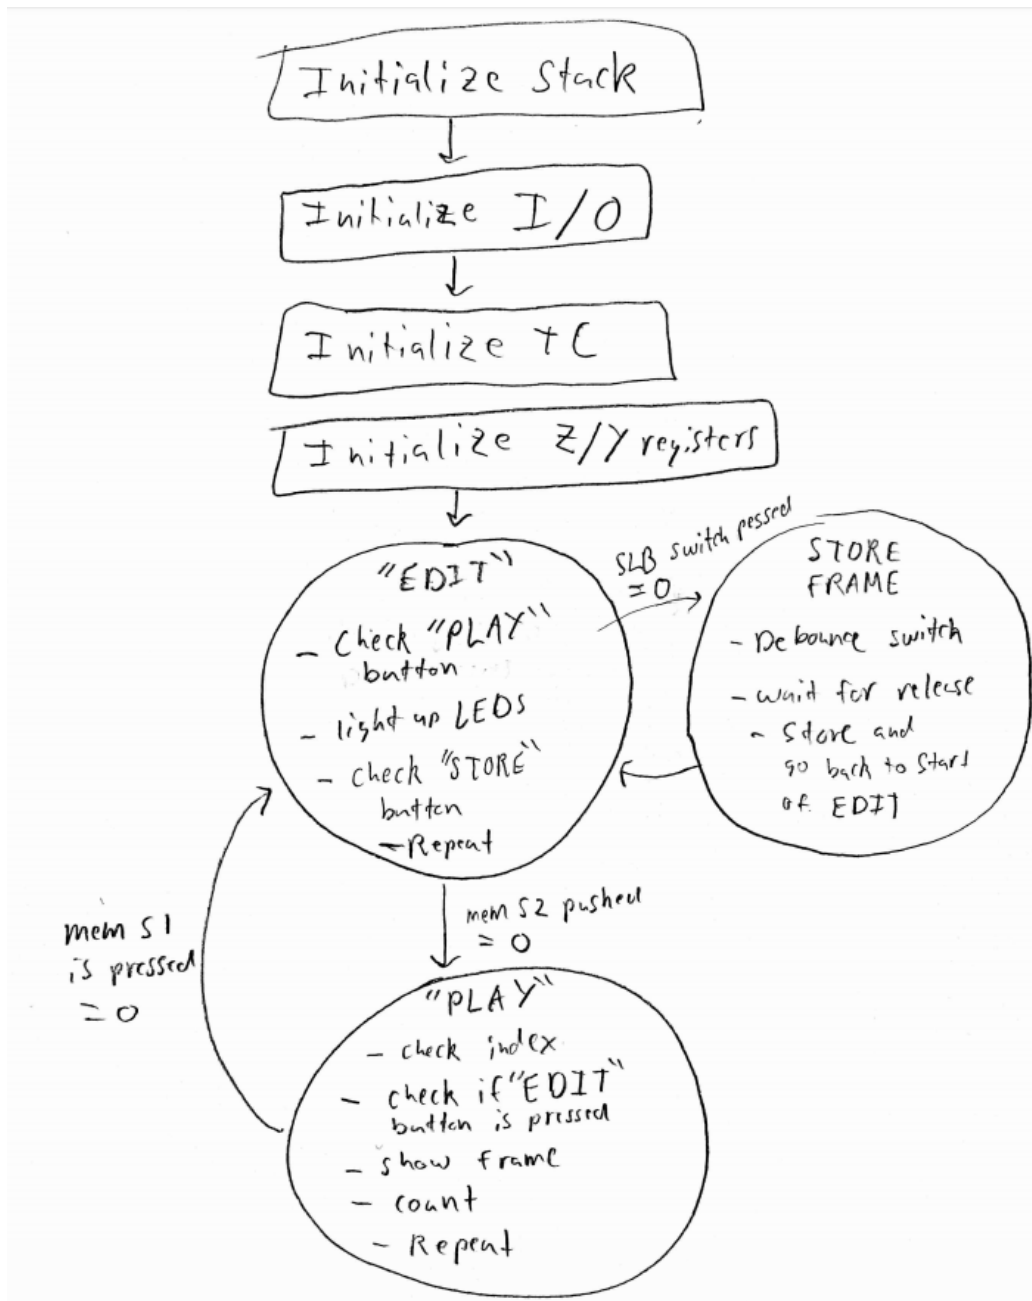 Initialize Stack
Initialize I/O
Initialize TC
Initialize Z/Y registers
"EDIT"
- Check "PLAY"
button
- light up LEDs
- check "STORE"
button
- Repeat
SLB switch pessed
= 0
STORE
FRAME
- Debounce switch
- wait for release
- Store and
go back to Start
of EDIT
mem S2 pushed
= 0
mem S1
is pressed
= 0
"PLAY"
- check index
- check if "EDIT"
button is pressed
- show frame
- count
- Repeat